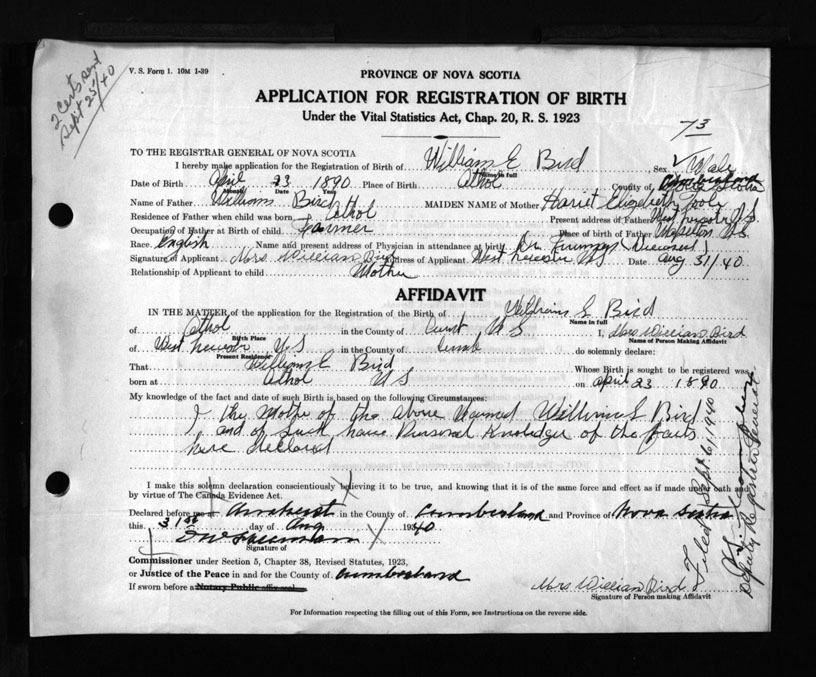 2 Certs. Sent
Sept 25/40
V. S. Form 1. 10M 1-39
PROVINCE OF NOVA SCOTIA
APPLICATION FOR REGISTRATION OF BIRTH
Under the Vital Statistics Act, Chap. 20, R. S. 1923
73
TO THE REGISTRAR GENERAL OF NOVA SCOTIA
I hereby make application for the Registration of Birth of William E Bird Sex Male
Name in full
Date of Birth April 23 1890 Place of Birth Athol County of
Month Date Year
Name of Father Bird MAIDEN NAME of Mother Harriet Elizabeth
Residence of Father when child was born Athol Present address of Father
Occupation of Father at Birth of Child Farmer Place of birth of Father N.S.
Race. English Name and present address of Physician in attendance at birth Dr.
Signature of Applicant Mrs William Bird Address of Applicant West N S Date Aug 31/40
Relationship of Applicant to child Mother
AFFIDAVIT
IN THE MATTER of the application for the Registration of the Birth of Bird
Name in full
of Athol in the County of N S I, Mrs William Bird
Birth Place Name of Person Making Affidavit
of West N S in the County of Cumb do solemnly declare:
Present Residence
That William E Bird Whose Birth is sought to be registered was
born at Athol N S on April 23 1890
My knowledge of the fact and date of such Birth is based on the following Circumstances:
I the Mother of the above Named Bird
and of such have Personal Knowledge of the facts
here declared
I make this solemn declaration conscientiously believing it to be true, and knowing that it is of the same force and effect as if made under oath and
by virtue of The Canada Evidence Act.
Declared before me at Amherst in the County of Cumberland and Province of Nova Scotia
this 31st day of Aug 1940
Signature of
Commissioner under Section 5, Chapter 38, Revised Statutes, 1923,
or Justice of the Peace in and for the County of Cumberland
If sworn before a Notary Public affix seal.
Mrs William Bird
Signature of Person making Affidavit
For Information respecting the filling out of this Form, see Instructions on the reverse side.
Filed Sept. 6, 1940
Deputy Registrar General